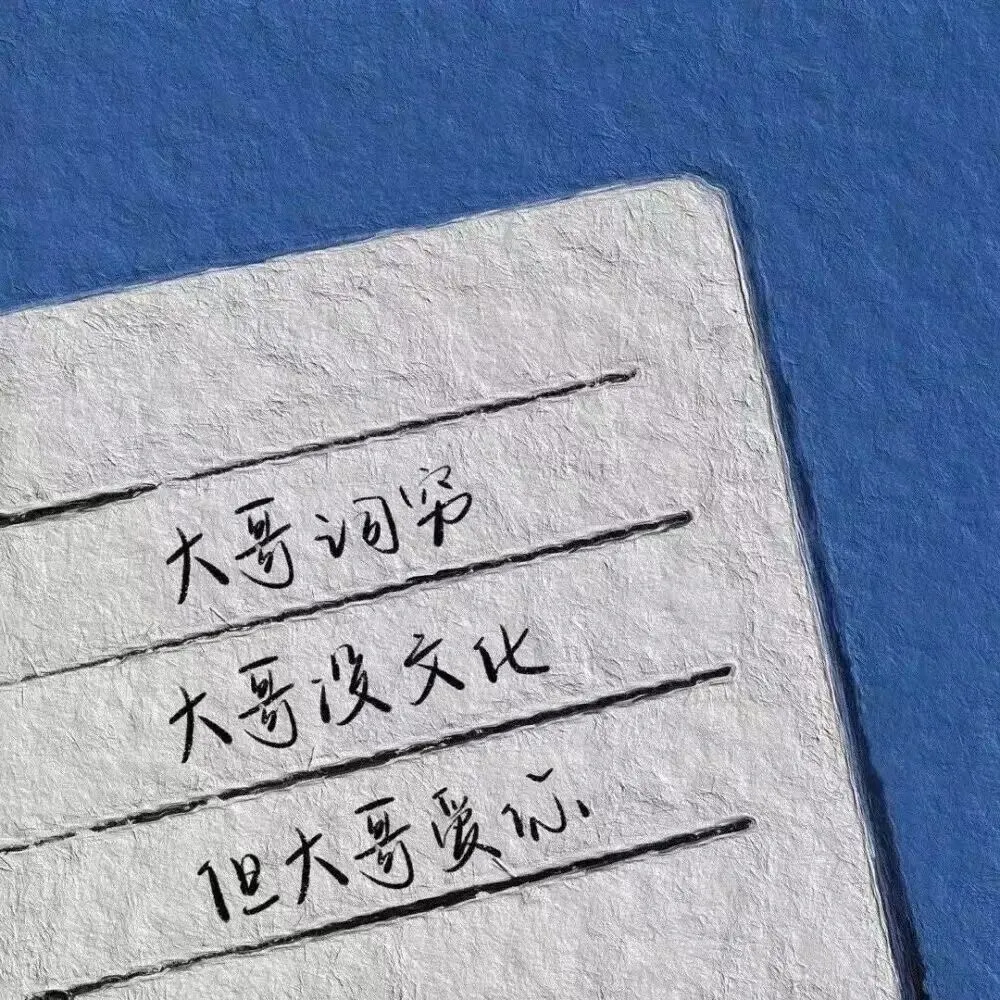 大哥词穷
大哥没文化
但大哥爱你